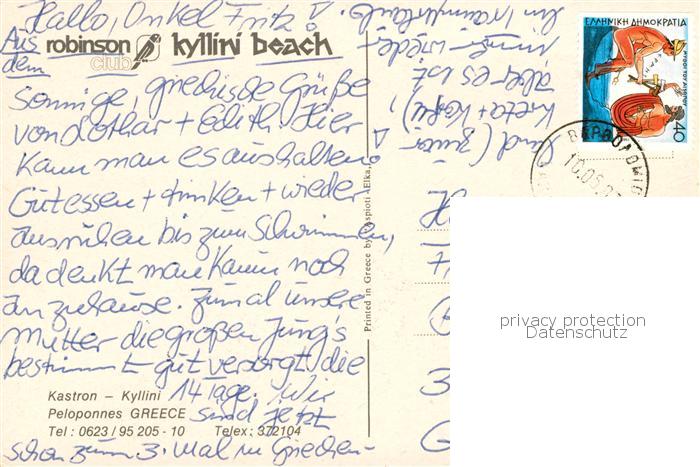 Hallo, Onkel Fritz!
Aus dem robinson club kyllini beach
sonnige, griechische Grüße
von Lothar + Edith. Hier
kann man es aushalten!
Gut essen + trinken + wieder
ausruhen bis zum Schwimmen,
da denkt man kaum noch
an zuhause. Zumal unsere
Mutter die großen Jung's
bestimmt gut versorgt die
14 Tage. Wir
sind jetzt
schon zum 3. Mal in Griechen-
land (zuvor
Kreta + Kos),
aber es ist
immer wieder
ein Traumurlaub
Kastron – Kyllini
Peloponnes GREECE
Tel : 0623 / 95 205 - 10 Telex : 372104
Printed in Greece by Aspioti - Elka
ΕΛΛΗΝΙΚΗ ΔΗΜΟΚΡΑΤΙΑ
40
10.05.
privacy protection
Datenschutz